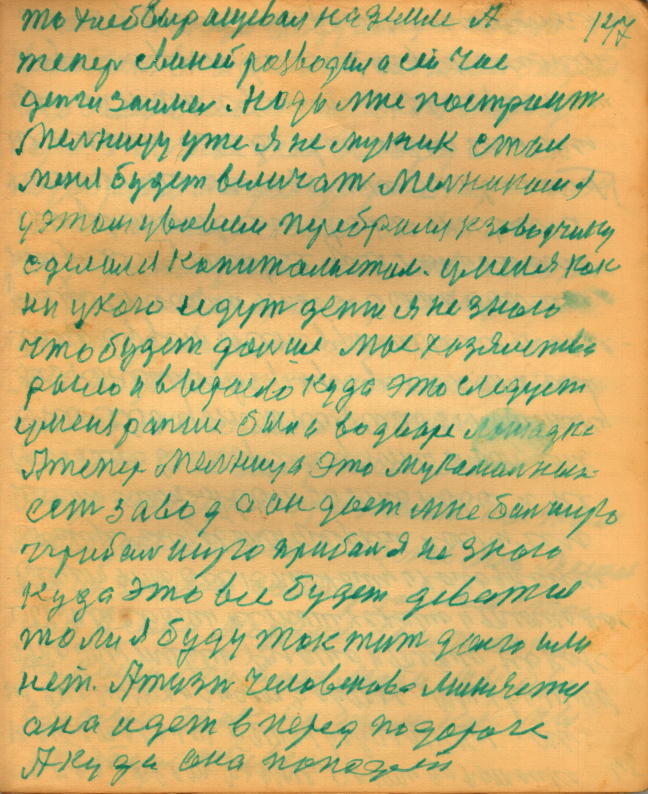 то хлеб выращевал на земле А
127
тепер свиней розводил а сей час
денги займел. Надо мне построит
Мелницу уже я не мужик стал
меня будет величат Мелником я
у этом увовсем перебрался к заводчику
зделался капиталистом. у меня как
ни у кого идут дела я не знаю
что будет долше мое хозяйство
рысло и выросло куда это следует
у меня ранше была во дворе лошадка
А тепер Мелница это
ест завод а он дает мне болшую
прибал я не знаю
куда это все будет деватся
то ли я буду так жит долго или
нет. А жизн человекова миняетця
она идет в перед по дороге
А куда она попадет